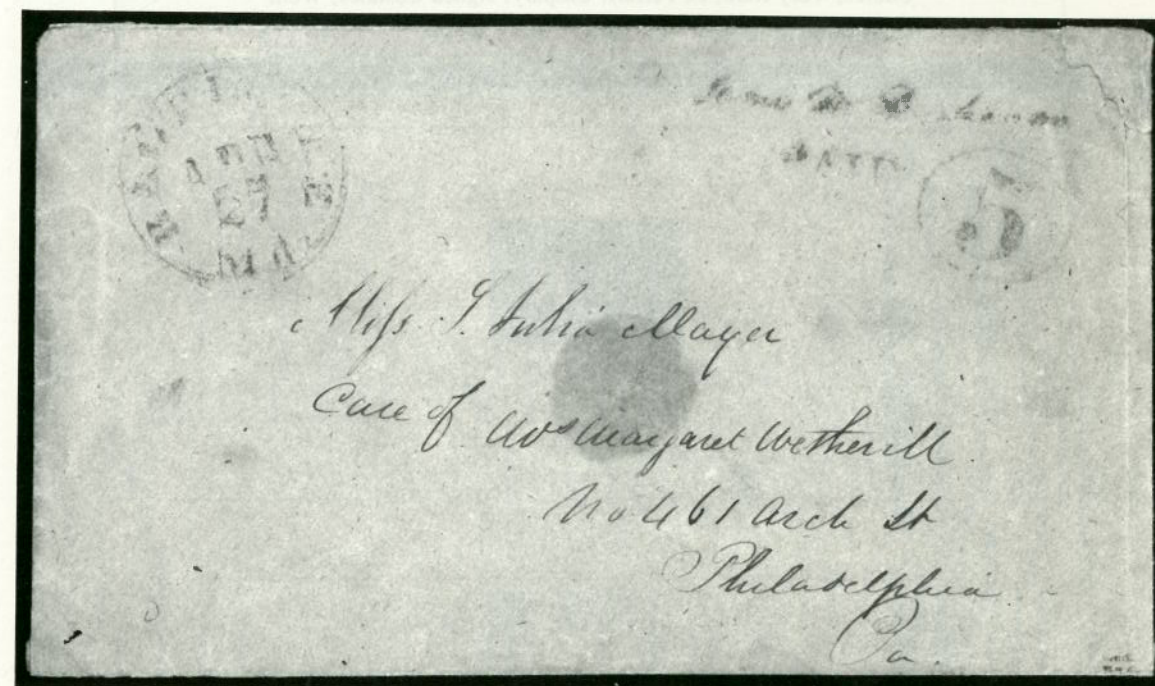 BALTIMORE
APR
27
Md.
James M. Buchanan
PAID
5
Miss S. Julia Mayer
Care of Mrs Margaret Wetherill
No 461 Arch St
Philadelphia
Pa.